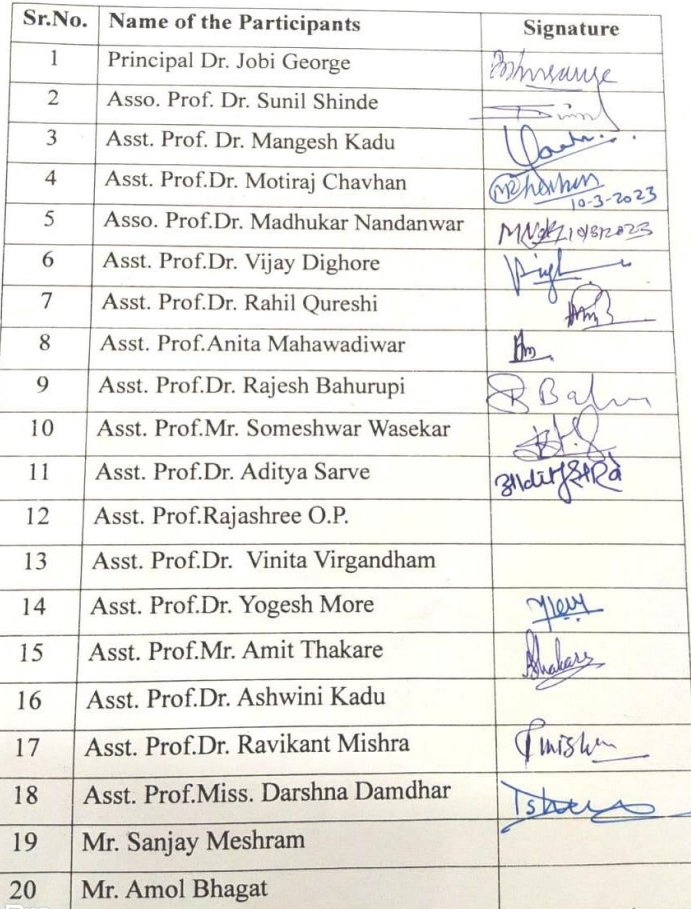 Sr.No. Name of the Participants Signature
1 Principal Dr. Jobi George
2 Asso. Prof. Dr. Sunil Shinde
3 Asst. Prof. Dr. Mangesh Kadu
4 Asst. Prof.Dr. Motiraj Chavhan 10-3-2023
5 Asso. Prof.Dr. Madhukar Nandanwar 10/3/2023
6 Asst. Prof.Dr. Vijay Dighore
7 Asst. Prof.Dr. Rahil Qureshi
8 Asst. Prof.Anita Mahawadiwar
9 Asst. Prof.Dr. Rajesh Bahurupi
10 Asst. Prof.Mr. Someshwar Wasekar
11 Asst. Prof.Dr. Aditya Sarve
12 Asst. Prof.Rajashree O.P.
13 Asst. Prof.Dr. Vinita Virgandham
14 Asst. Prof.Dr. Yogesh More
15 Asst. Prof.Mr. Amit Thakare
16 Asst. Prof.Dr. Ashwini Kadu
17 Asst. Prof.Dr. Ravikant Mishra
18 Asst. Prof.Miss. Darshna Damdhar
19 Mr. Sanjay Meshram
20 Mr. Amol Bhagat